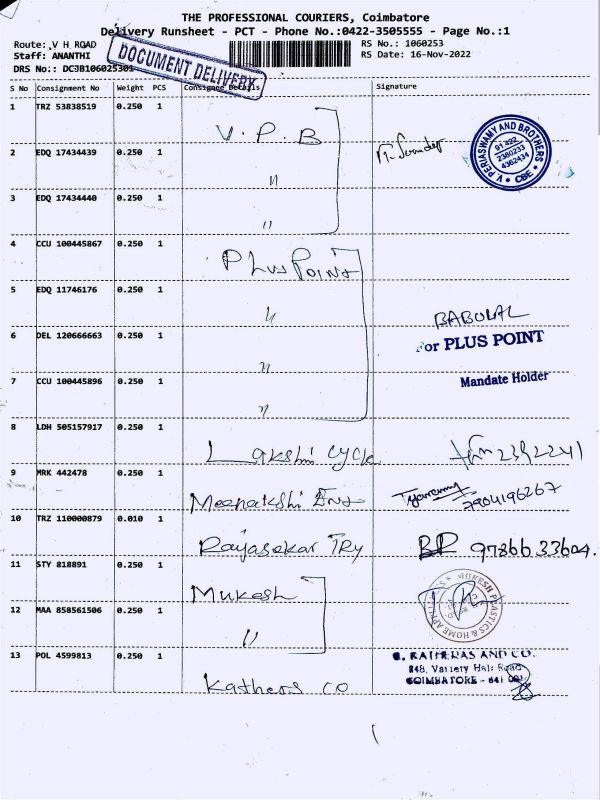 THE PROFESSIONAL COURIERS, Coimbatore
Delivery Runsheet - PCT - Phone No.:0422-3505555 - Page No.:1
Route: V H ROAD RS No.: 1060253
Staff: ANANTHI RS Date: 16-Nov-2022
DRS No.: DCJB106025301
DOCUMENT DELIVERY
S No Consignment No Weight PCS Consignee Details Signature
1 TRZ 53838519 0.250 1 V.P.B
V PERIASWAMY AND BROTHERS
2380233
4362434
CBE
2 EDQ 17434439 0.250 1 "
3 EDQ 17434440 0.250 1 "
4 CCU 100445867 0.250 1 Plus Point
5 EDQ 11746176 0.250 1 " BABULAL
6 DEL 120666663 0.250 1 " For PLUS POINT
7 CCU 100445896 0.250 1 " Mandate Holder
8 LDH 505157917 0.250 1 Lakshi cycle
9 MRK 442478 0.250 1 Meenakshi Ent 7904196267
10 TRZ 110000879 0.010 1 Rajasekar TRY BR 9786633604.
11 STY 818891 0.250 1 Mukesh
MUKESH PLASTICS & HOME APPLIANCES
12 MAA 858561506 0.250 1 "
13 POL 4599813 0.250 1 Kathers co
AND CO.
848, Variety Hall Road
COIMBATORE - 641 001